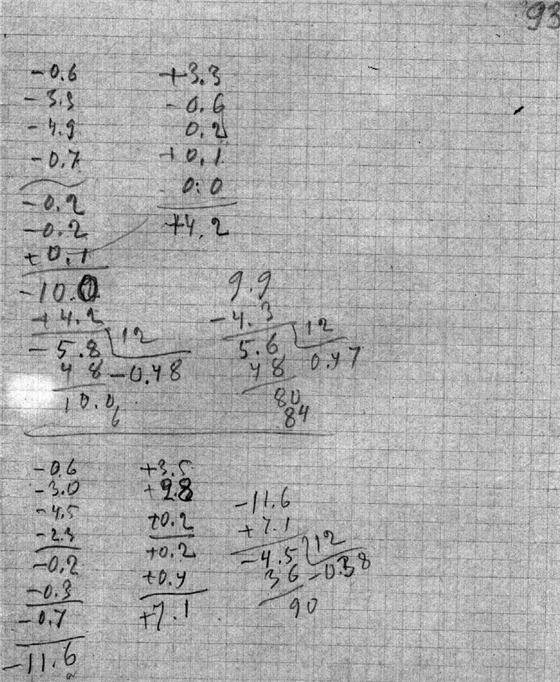 93
-0.6
-3.3
-4.9
-0.7
-0.2
-0.2
+0.1
-10.0
+4.2
-5.8 12
48 -0.48
10.0
6
+3.3
-0.6
0.2
+0.1
0.0
+4.2
9.9
-4.3
5.6 12
48 0.47
80
84
-0.6
-3.0
-4.5
-2.3
-0.2
-0.3
-0.7
-11.6
+3.5
+2.8
+0.2
+0.2
+0.4
+7.1
-11.6
+7.1
-4.5 12
36 -0.38
90